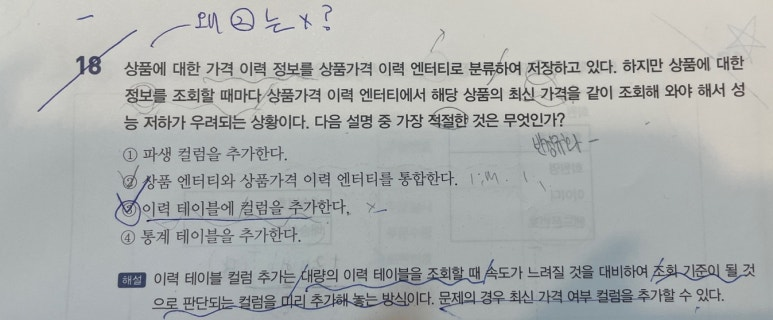 왜 ② 는 x?
18 상품에 대한 가격 이력 정보를 상품가격 이력 엔터티로 분류하여 저장하고 있다. 하지만 상품에 대한
정보를 조회할 때마다 상품가격 이력 엔터티에서 해당 상품의 최신 가격을 같이 조회해 와야 해서 성
능 저하가 우려되는 상황이다. 다음 설명 중 가장 적절한 것은 무엇인가?
반정규화
① 파생 컬럼을 추가한다.
② 상품 엔터티와 상품가격 이력 엔터티를 통합한다.
③ 이력 테이블에 컬럼을 추가한다. x
④ 통계 테이블을 추가한다.
해설 이력 테이블 컬럼 추가는 대량의 이력 테이블을 조회할 때 속도가 느려질 것을 대비하여 조회 기준이 될 것
으로 판단되는 컬럼을 미리 추가해 놓는 방식이다. 문제의 경우 최신 가격 여부 컬럼을 추가할 수 있다.